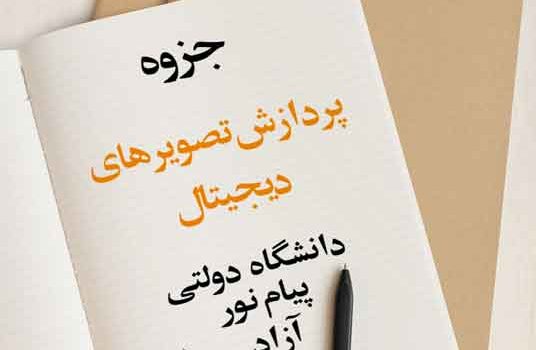 جزوه
پردازش تصویرهای
دیجیتال
دانشگاه دولتی
پیام نور
آزاد